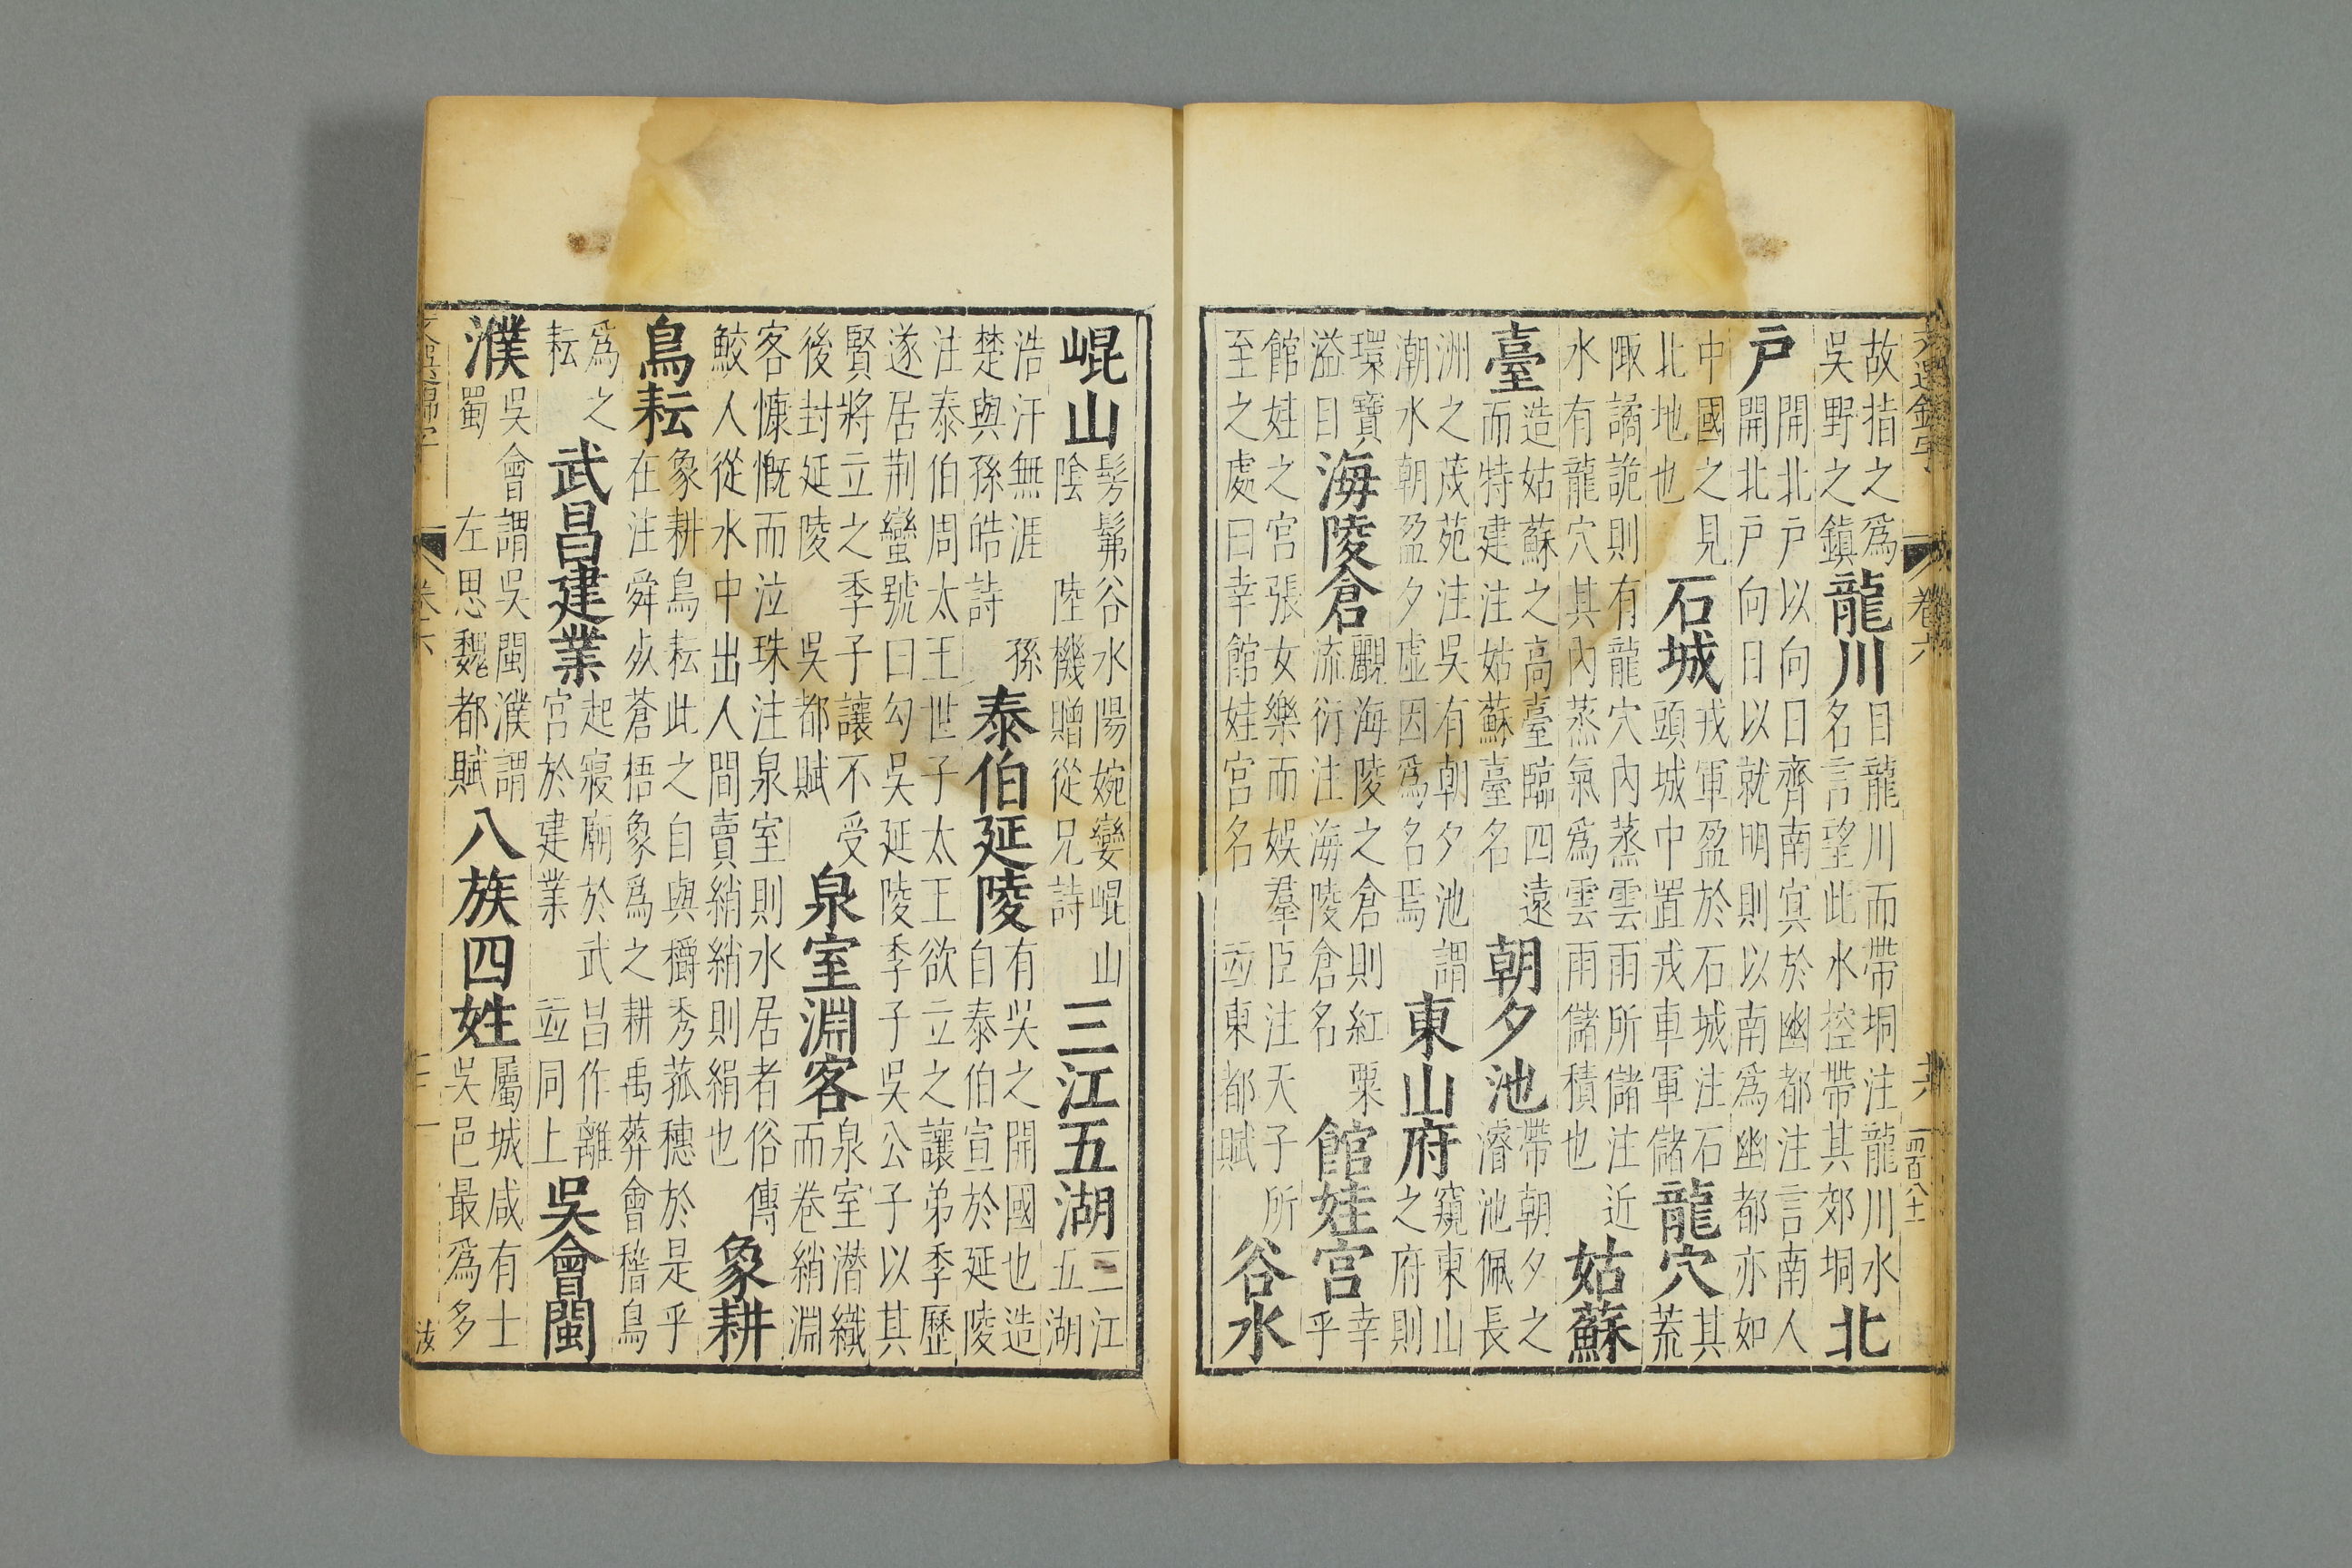 文選錦字 卷六 四百八十一
故指之爲吳野之鎮龍川目龍川而帶坰注龍川水名言望此水控帶其郊坰北
戶開北戶以向日齊南冥於幽都注言南人開北戶向日以就明則以南爲幽都亦如
中國之見北地也石城戎軍盈於石城注石頭城中置戎車軍儲龍穴其荒
陬譎詭則有龍穴內蒸雲雨所儲注近水有龍穴其內蒸氣爲雲雨儲積也姑蘇
臺造姑蘇之高臺臨四遠而特建注姑蘇臺名朝夕池帶朝夕之濬池佩長
洲之茂苑注吳有朝夕池謂潮水朝盈夕虛因爲名焉東山府窺東山之府則
環寶溢目海陵倉覼海陵之倉則紅粟流衍注海陵倉名館娃宮幸乎
館娃之宮張女樂而娛羣臣注天子所至之處曰幸館娃宮名 並東都賦谷水
崐山髣髴谷水陽婉孌崐山陰 陸機贈從兄詩三江五湖三江五湖
浩汗無涯 孫楚與孫皓詩泰伯延陵有吳之開國也造自泰伯宣於延陵
注泰伯周太王世子太王欲立之讓弟季歷遂居荆蠻號曰勾吳延陵季子吳公子以其
賢將立之季子讓不受後封延陵 吳都賦泉室淵客泉室潜織而卷綃淵
客慷慨而泣珠注泉室則水居者俗傳鮫人從水中出人間賣綃綃則絹也象耕
鳥耘象耕鳥耘此之自與穱秀菰穗於是乎在注舜死蒼梧象爲之耕禹葬會稽鳥
爲之耘武昌建業起寢廟於武昌作離宮於建業 並同上吳會閩
濮吳會謂吳閩濮謂蜀 左思魏都賦八族四姓屬城咸有士吳邑最爲多
卷六 汝